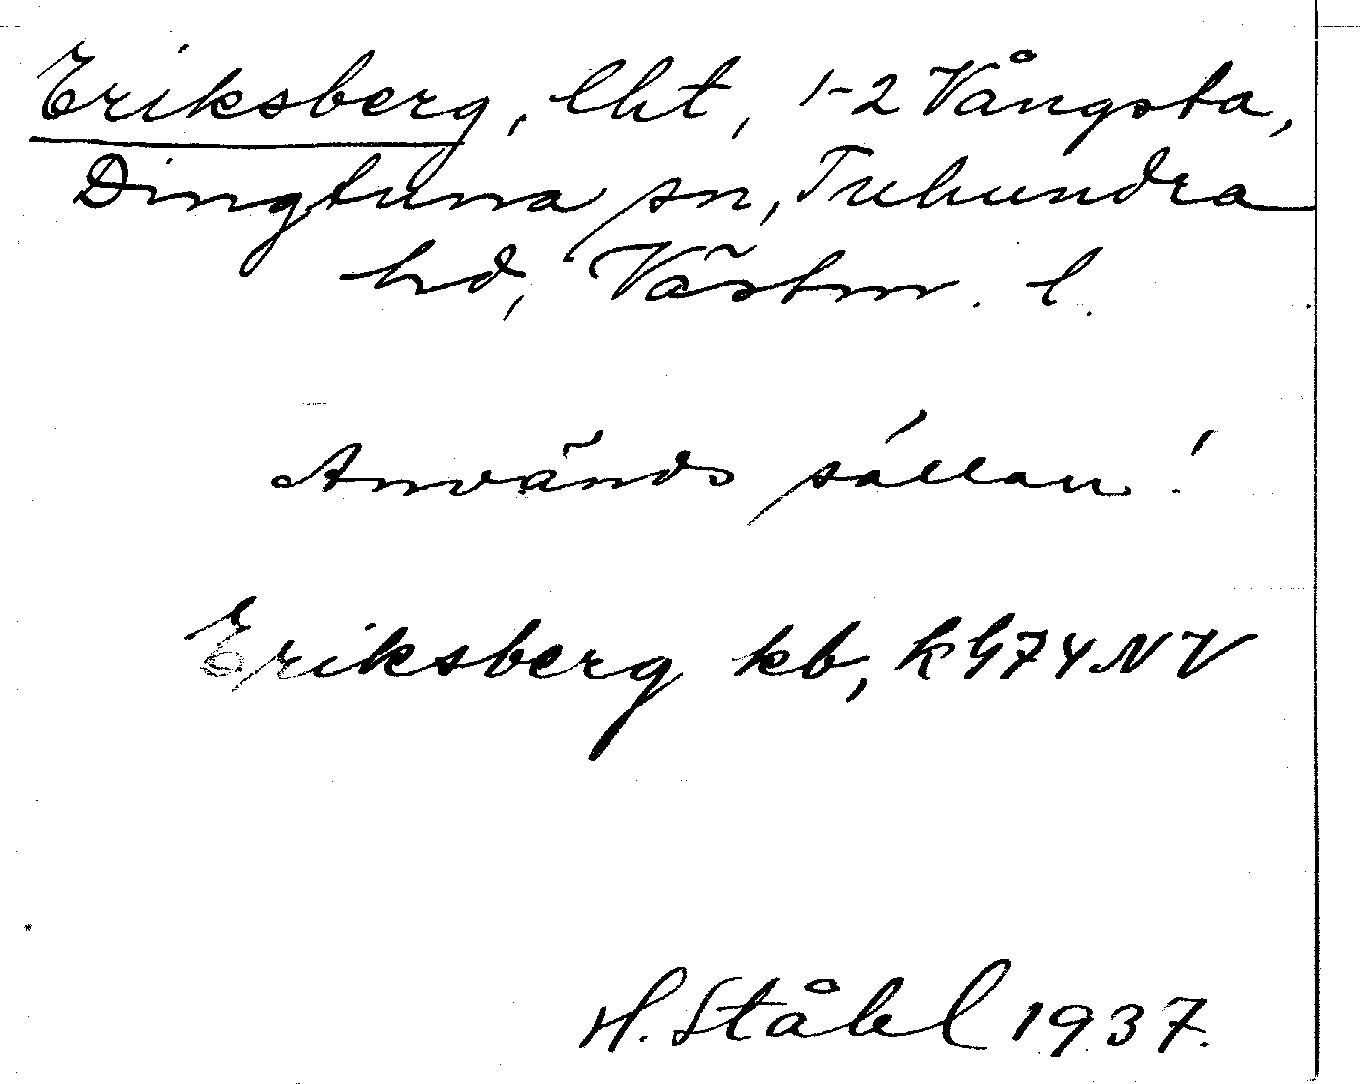 Eriksberg, lht, 1-2 Vångsta,
Dingtuna sn, Tuhundra
hd, Västm. l.
Används sällan!
Eriksberg kb, k G74NV
H. Ståhl 1937.